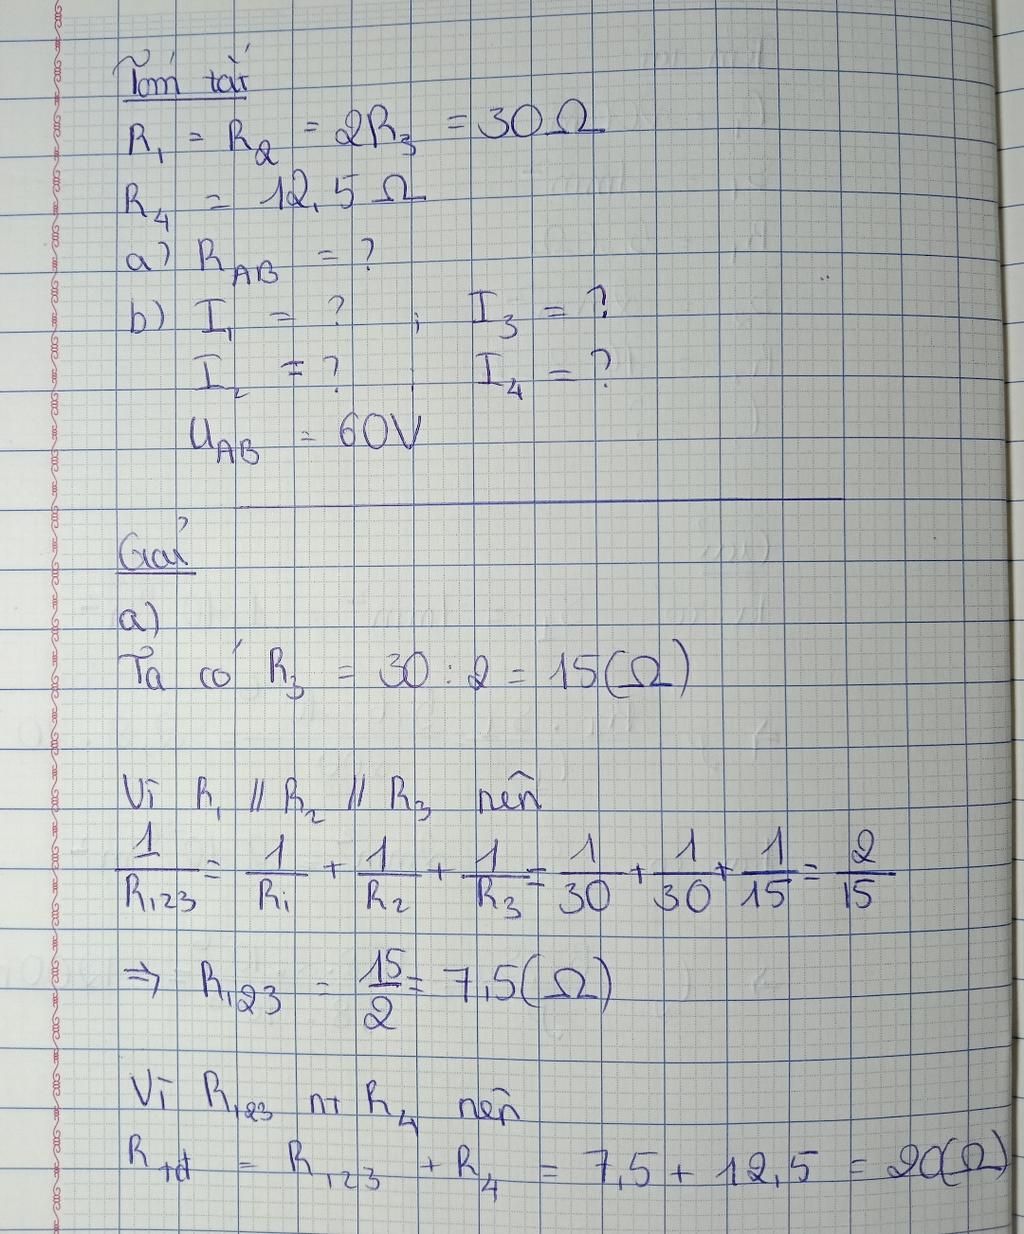 Tóm tắt
R₁ = R₂ = 2R₃ = 30Ω
R₄ = 12,5 Ω
a) R_AB = ?
b) I₁ = ? ; I₃ = ?
I₂ = ? ; I₄ = ?
U_AB = 60V
Giải
a)
Ta có R₃ = 30 : 2 = 15(Ω)
Vì R₁ // R₂ // R₃ nên
1/R₁₂₃ = 1/R₁ + 1/R₂ + 1/R₃ = 1/30 + 1/30 + 1/15 = 2/15
⇒ R₁₂₃ = 15/2 = 7,5(Ω)
Vì R₁₂₃ nt R₄ nên
R_tđ = R₁₂₃ + R₄ = 7,5 + 12,5 = 20(Ω)